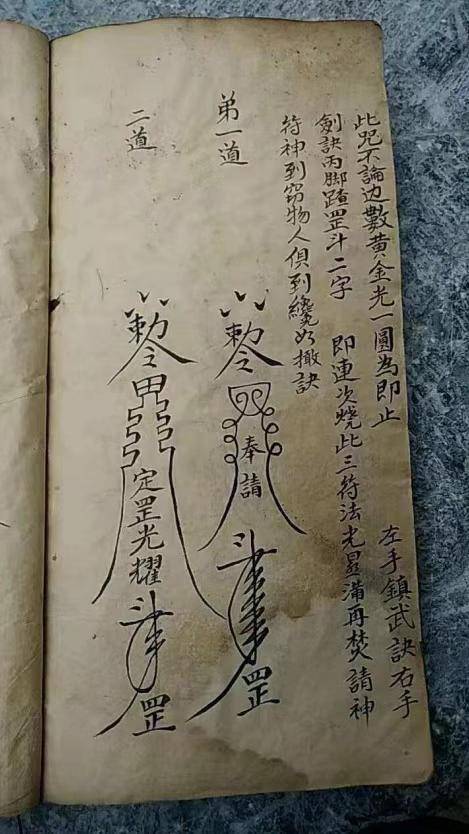 此咒不論边數黃金光一圓為即止
左手鎮武訣右手
劍訣丙脚踏罡斗二字
即連次燒此三符法光显滿再焚請神
符神到窃物人俱到纔好撤訣
第一道
勅令
奉請
斗
罡
二道
勅令
定罡光耀
斗
罡